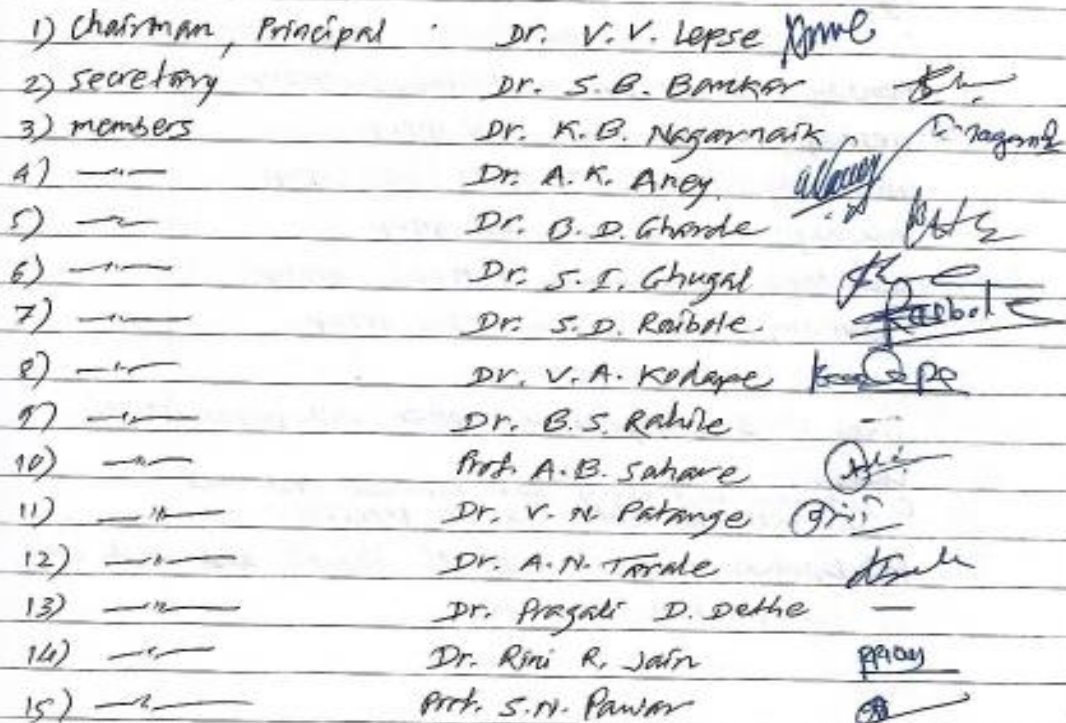 1) Chairman, Principal Dr. V. V. Lepse
2) secretary Dr. S. B. Bankar
3) members Dr. K. B. Nagarnaik
4) —〃— Dr. A. K. Aney
5) —〃— Dr. B. D. Gharde
6) —〃— Dr. S. I. Ghugal
7) —〃— Dr. S. D. Raibole.
8) —〃— Dr. V. A. Kodape
9) —〃— Dr. B. S. Rahile —
10) —〃— Prof. A. B. Sahare
11) —〃— Dr. V. N. Patange
12) —〃— Dr. A. N. Tarale
13) —〃— Dr. Pragati D. Dethe —
14) —〃— Dr. Rini R. Jain
15) —〃— Prof. S. N. Pawar